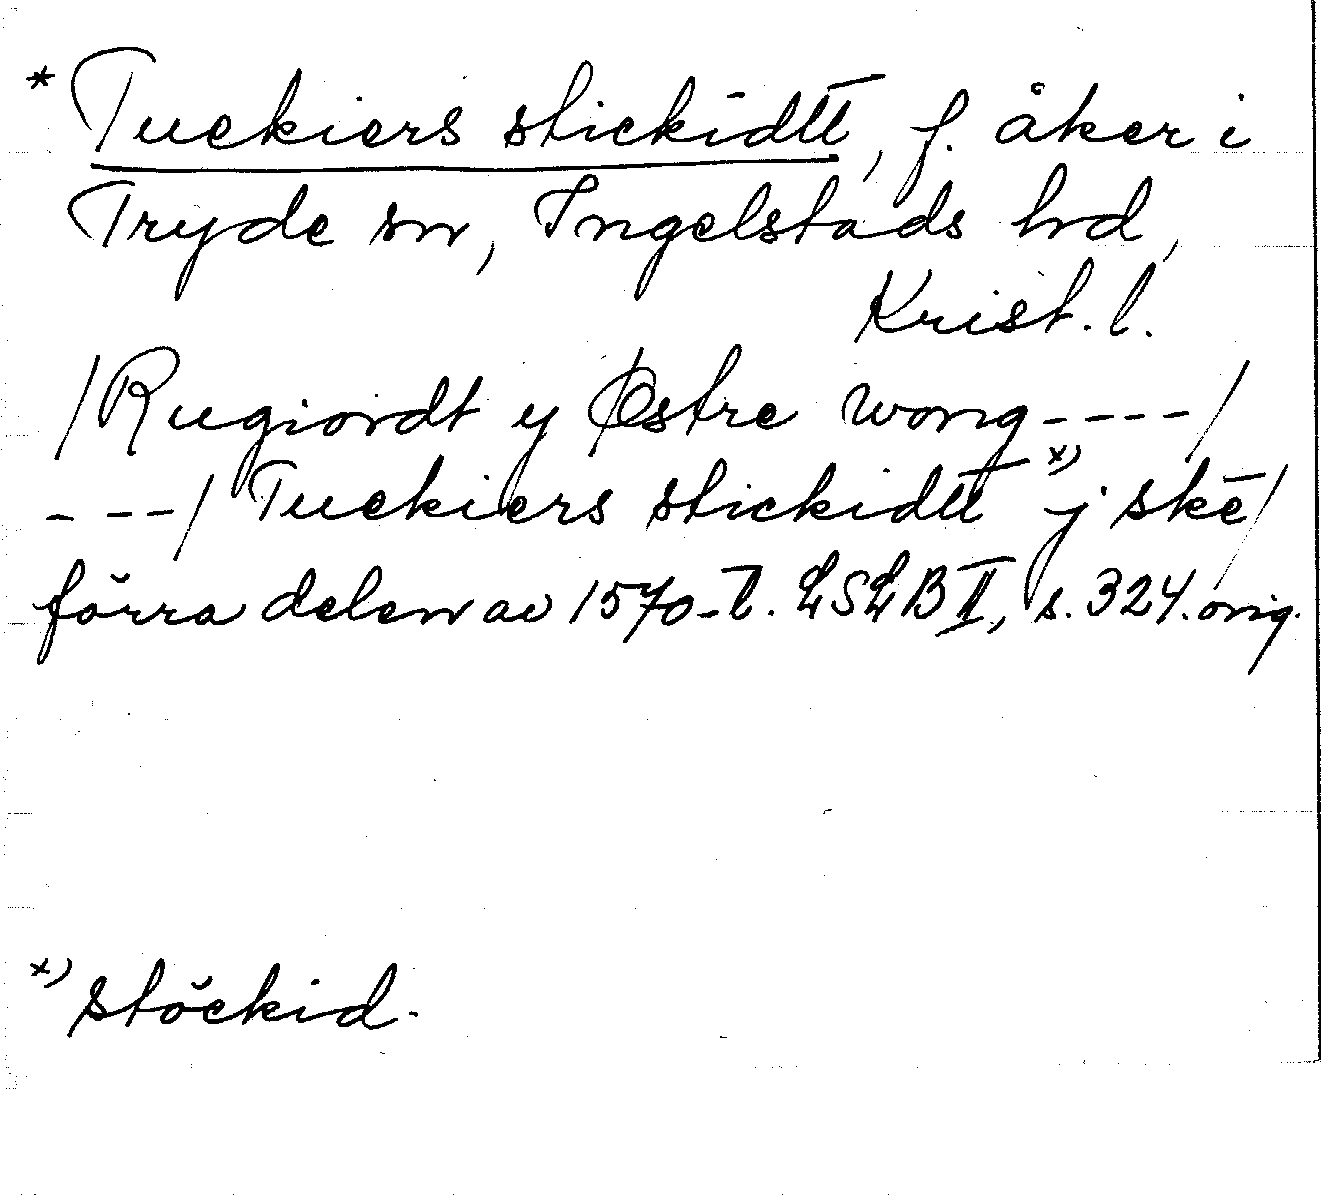 * Tuckiers stickidtt, f. åker i
Tryde sn, Ingelstads hd,
Krist. l.
/Rugiordt y Østre wong ----/
---/ Tuckiers stickidtt x) j skē/
förra delen av 1570-t. LSLB II, s. 324. orig.
x) stöckid.